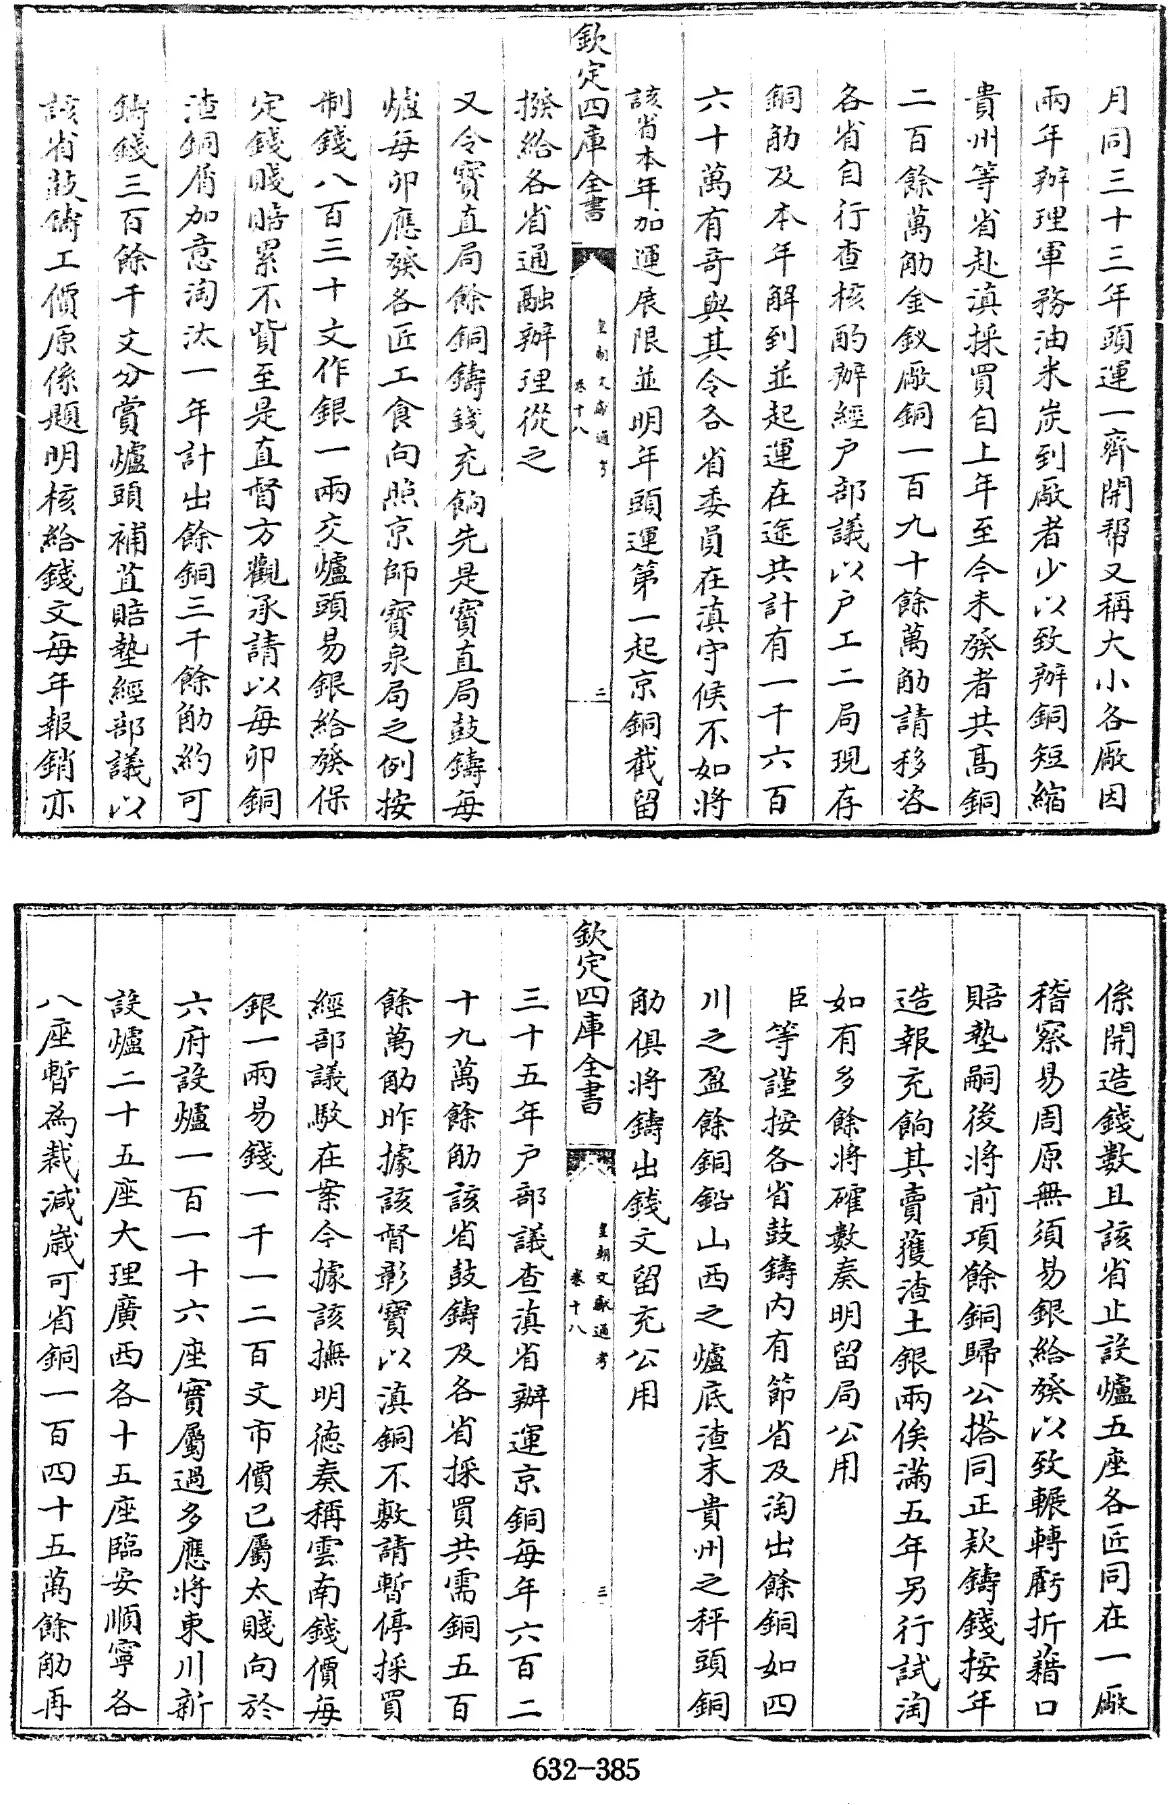 月同三十三年頭運一齊開幫又稱大小各厰因
兩年辦理軍務油米炭到厰者少以致辦銅短縮
貴州等省赴滇採買自上年至今未發者共髙銅
二百餘萬觔金釵厰銅一百九十餘萬觔請移咨
各省自行查核酌辦經户部議以户工二局現存
銅觔及本年解到並起運在途共計有一千六百
六十萬有奇與其令各省委員在滇守候不如將
該省本年加運展限並明年頭運第一起京銅截留
欽定四庫全書
皇朝文獻通考
卷十八
二
撥給各省通融辦理從之
又令寶直局餘銅鑄錢充餉先是寶直局鼓鑄每
爐每卯應發各匠工食向照京師寶泉局之例按
制錢八百三十文作銀一兩交爐頭易銀給發保
定錢賤賠累不貲至是直督方觀承請以每卯銅
渣銅屑加意淘汰一年計出餘銅三千餘觔約可
鑄錢三百餘千文分賞爐頭補苴賠墊經部議以
該省鼓鑄工價原係題明核給錢文每年報銷亦
係開造錢數且該省止設爐五座各匠同在一厰
稽察易周原無須易銀給發以致輾轉虧折藉口
賠墊嗣後將前項餘銅歸公搭同正款鑄錢按年
造報充餉其賣獲渣土銀兩俟滿五年另行試淘
如有多餘將確數奏明留局公用
臣等謹按各省鼓鑄内有節省及淘出餘銅如四
川之盈餘銅鉛山西之爐底渣末貴州之秤頭銅
觔俱將鑄出錢文留充公用
欽定四庫全書
皇朝文獻通考
卷十八
三
三十五年户部議查滇省辦運京銅每年六百二
十九萬餘觔該省鼓鑄及各省採買共需銅五百
餘萬觔昨據該督彰寶以滇銅不敷請暫停採買
經部議駁在案今據該撫明德奏稱雲南錢價每
銀一兩易錢一千一二百文市價已屬太賤向於
六府設爐一百一十六座實屬過多應將東川新
設爐二十五座大理廣西各十五座臨安順寧各
八座暫為裁減嵗可省銅一百四十五萬餘觔再
632-385